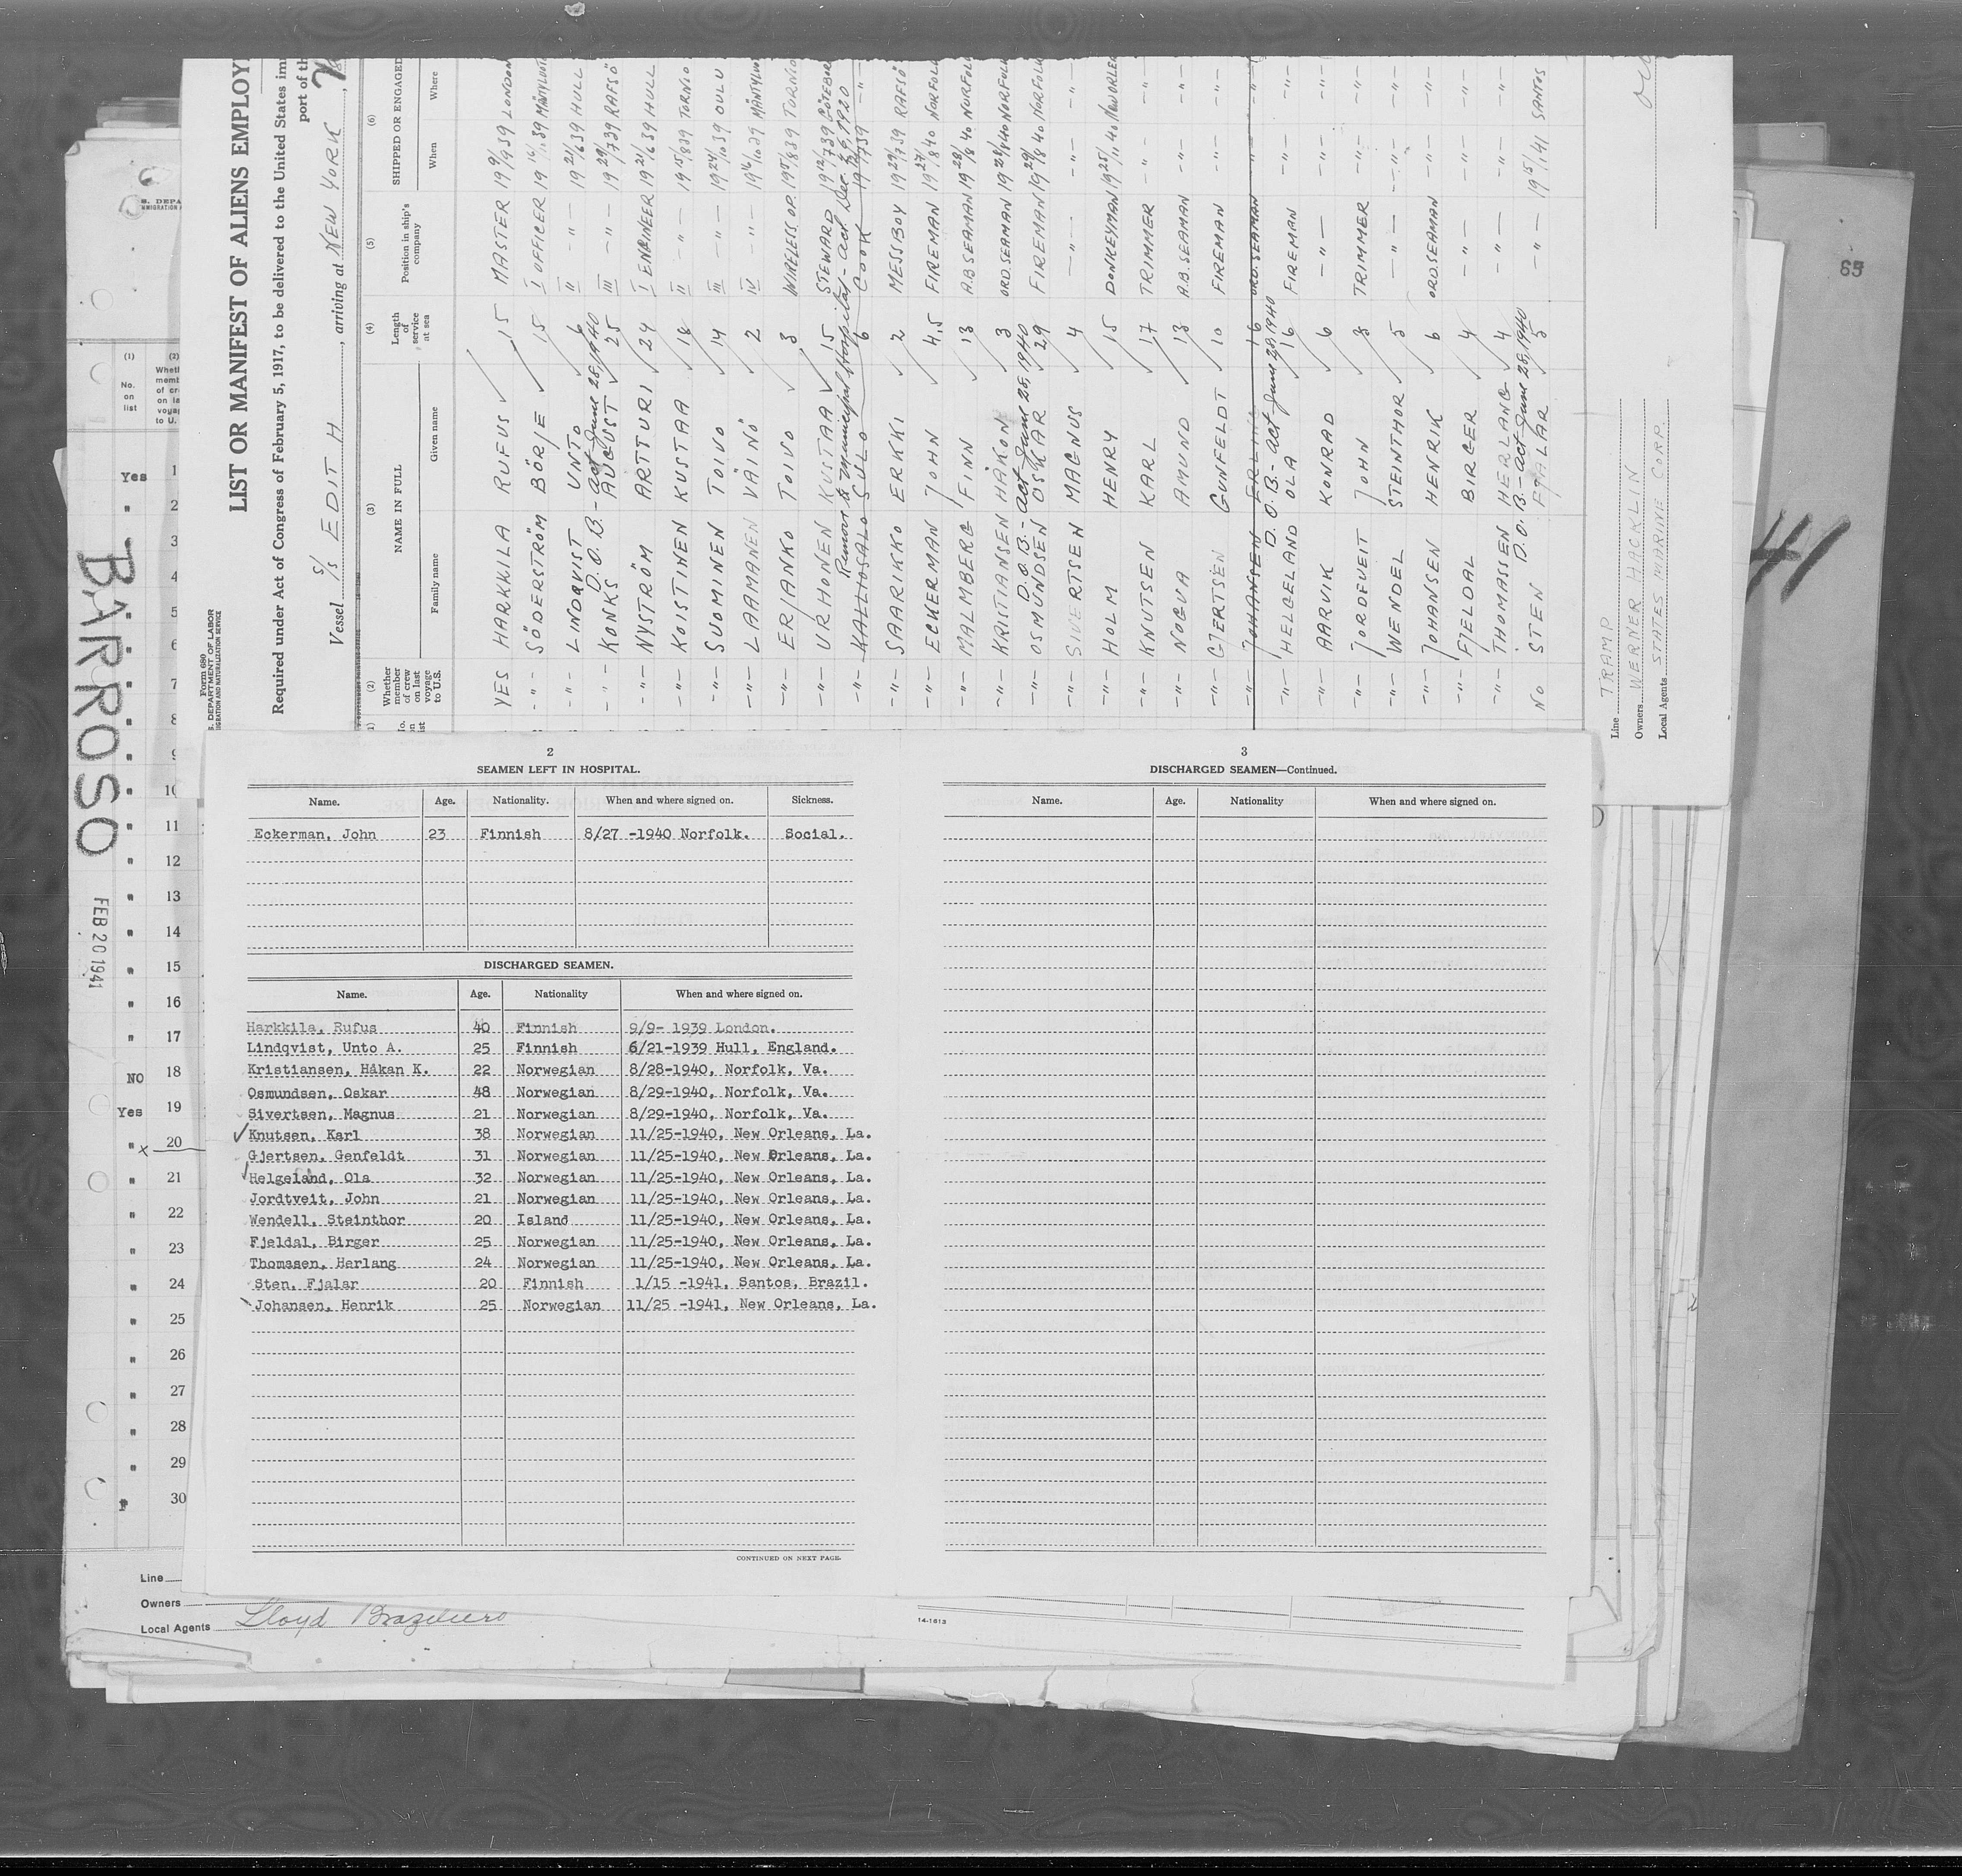 LIST OR MANIFEST OF ALIENS EMPLOY
Required under Act of Congress of February 5, 1917, to be delivered to the United States im
port of th
Vessel S/S EDITH H, arriving at NEW YORK
Form 680
S. DEPARTMENT OF LABOR
(2) (3) (4) (5) (6)
Whether member of crew on last voyage to U.S. NAME IN FULL Length of service at sea Position in ship's company SHIPPED OR ENGAGED
Family name Given name When Where
YES HARKKILA RUFUS 15 MASTER 19 9/9 39 LONDON
-"- SÖDERSTRÖM BÖRJE 15 I OFFICER
-"- LINDQVIST UNTO 6 II -"- 19 21/6 39 HULL
D.O.B.- act June 28, 1940
-"- KONKS AUGUST 25 III -"- 19 29/7 39 RAFSÖ
-"- NYSTRÖM ARTTURI 24 I ENGINEER 19 21/6 39 HULL
-"- KOISTINEN KUSTAA 18 II -"- 19 15/8 39 TORNIO
-"- SUOMINEN TOIVO 14 III -"- 19 24/10 39 OULU
-"- LAAMANEN VÄINÖ 2 IV -"-
-"- ERJANKO TOIVO 3 WIRELESS OP. TORNIO
-"- URHONEN KUSTAA 15 STEWARD 19 12/7 39
Remov. to municipal hospital - act Dec. 26, 1920
-"- KALLIOSALO SULO 6 COOK
-"- SAARIKKO ERKKI 2 MESSBOY 19 29/7 39 RAFSÖ
-"- ECKERMAN JOHN 4.5 FIREMAN 19 27/8 40 NORFOLK
-"- MALMBERG FINN 13 A.B SEAMAN 19 28/8 40 NORFOLK
-"- KRISTIANSEN HÅKON 3 ORD.SEAMAN NORFOLK
D.O.B.- act June 28, 1940
-"- OSMUNDSEN OSKAR 29 FIREMAN 19 29/8 40 NORFOLK
-"- SIVERTSEN MAGNUS 4 -"- -"- -"-
-"- HOLM HENRY 15 DONKEYMAN 19 25/11 40 NEW ORLEA
-"- KNUTSEN KARL 17 TRIMMER -"- -"-
-"- NOGVA AMUND 13 A.B.SEAMAN -"- -"-
-"- GJERTSEN GUNFELDT 10 FIREMAN -"- -"-
-"- JOHANSEN ERLING 16 ORD.SEAMAN -"- -"-
D.O.B.- act June 28, 1940
-"- HELGELAND OLA 16 FIREMAN -"- -"-
-"- AARVIK KONRAD 6 -"- -"- -"-
-"- JORDTVEIT JOHN 3 TRIMMER -"- -"-
-"- WENDEL STEINTHOR 5 -"- -"- -"-
-"- JOHANSEN HENRIK 6 ORD.SEAMAN -"- -"-
-"- FJELDAL BIRGER 4 -"- -"- -"-
-"- THOMASSEN HERLANG 4 -"- -"- -"-
D.O.B.- act June 28, 1940
NO STEN FJALAR 3 -"- 19 15/1 41 SANTOS
Line TRAMP
Owners WERNER HACKLIN
Local Agents STATES MARINE CORP.
41
65
BARROSO
FEB 20 1941
(1) (2)
No. on list
Yes 1
" 2
3
4
5
6
7
8
9
10
" 11
" 12
" 13
" 14
" 15
" 16
" 17
NO 18
Yes 19
" x 20
" 21
" 22
" 23
" 24
" 25
" 26
" 27
" 28
" 29
" 30
2
SEAMEN LEFT IN HOSPITAL.
Name. Age. Nationality. When and where signed on. Sickness.
Eckerman, John 23 Finnish 8/27 -1940 Norfolk. Social.
DISCHARGED SEAMEN.
Name. Age. Nationality When and where signed on.
Harkkila, Rufus 40 Finnish 9/9- 1939 London.
Lindqvist, Unto A. 25 Finnish 6/21-1939 Hull, England.
Kristiansen, Håkan K. 22 Norwegian 8/28-1940, Norfolk, Va.
Osmundsen, Oskar 48 Norwegian 8/29-1940, Norfolk, Va.
Sivertsen, Magnus 21 Norwegian 8/29-1940, Norfolk, Va.
Knutsen, Karl 38 Norwegian 11/25-1940, New Orleans, La.
Gjertsen, Genfeldt 31 Norwegian 11/25-1940, New Orleans, La.
Helgeland, Ola 32 Norwegian 11/25-1940, New Orleans, La.
Jordtveit, John 21 Norwegian 11/25-1940, New Orleans, La.
Wendell, Steinthor 20 Island 11/25-1940, New Orleans, La.
Fjeldal, Birger 25 Norwegian 11/25-1940, New Orleans, La.
Thomasen, Herlang 24 Norwegian 11/25-1940, New Orleans, La.
Sten, Fjalar 20 Finnish 1/15 -1941, Santos, Brazil.
Johansen, Henrik 25 Norwegian 11/25 -1941, New Orleans, La.
CONTINUED ON NEXT PAGE.
3
DISCHARGED SEAMEN—Continued.
Name. Age. Nationality When and where signed on.
Line
Owners
Local Agents Lloyd Braziliero
14-1613